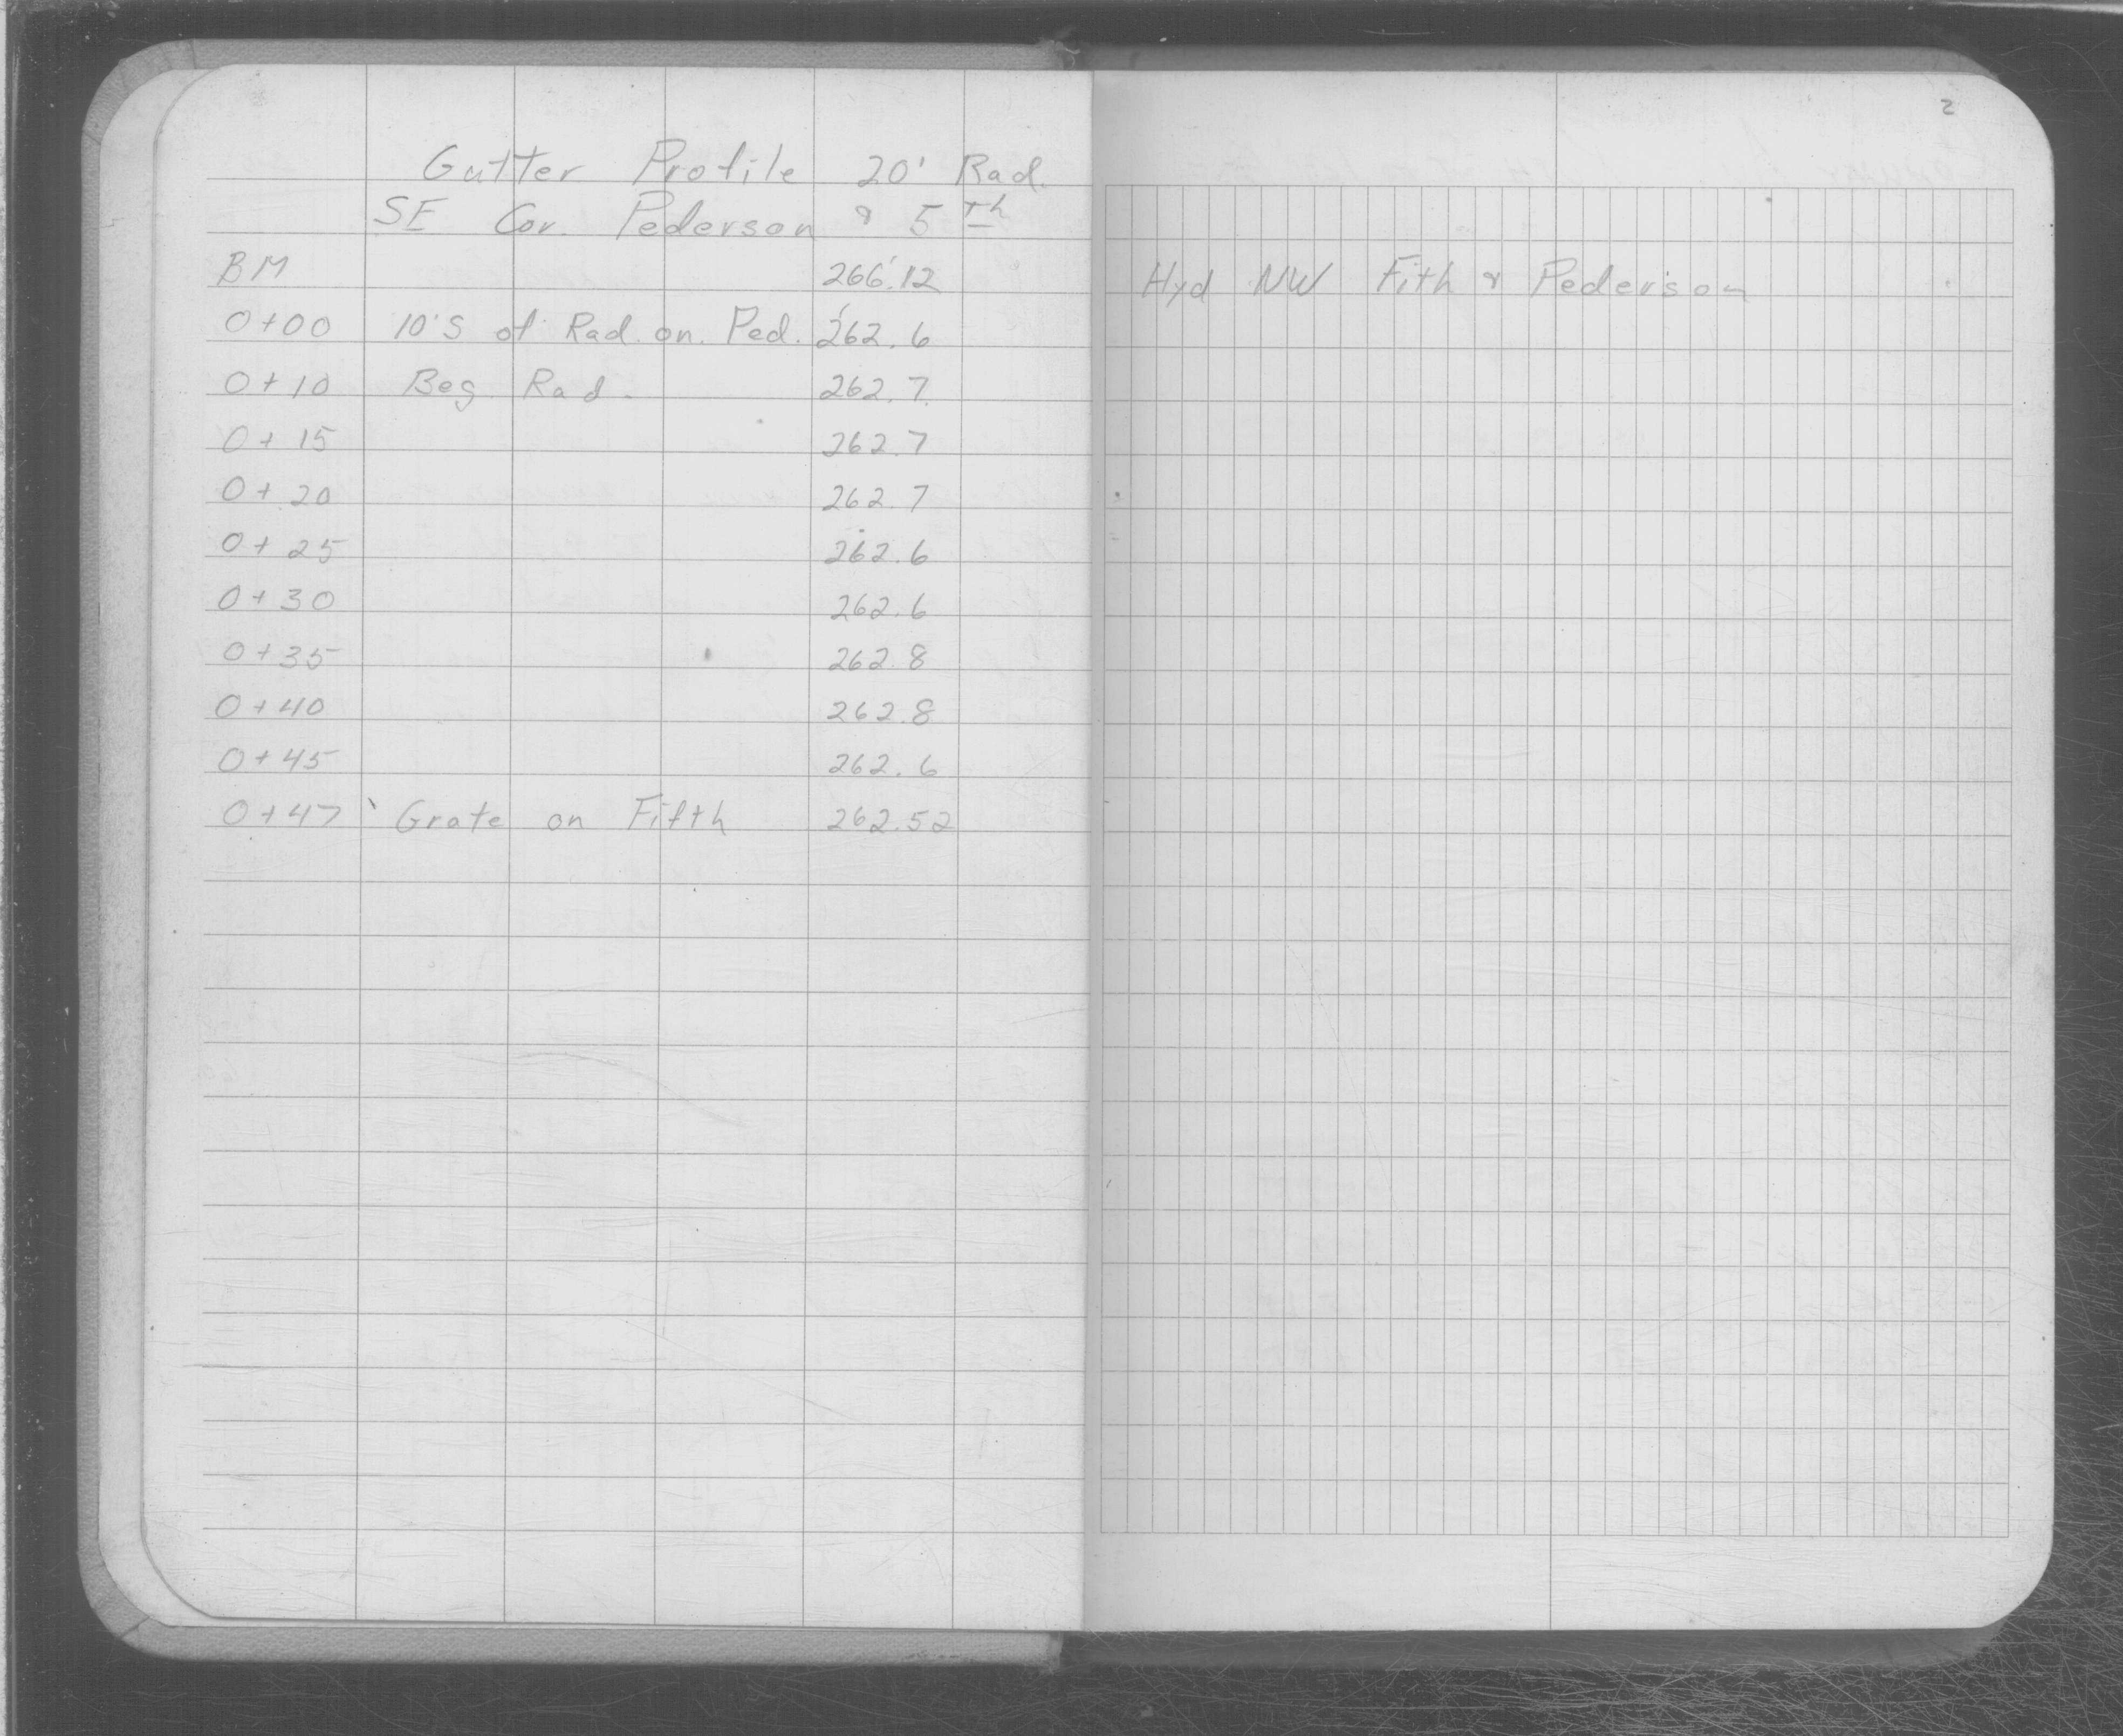 Gutter Profile 20' Rad.
SE Cor. Pederson & 5th
BM 266.12
0+00 10'S of Rad. on. Ped. 262.6
0+10 Beg. Rad. 262.7
0+15 262.7
0+20 262.7
0+25 262.6
0+30 262.6
0+35 262.8
0+40 262.8
0+45 262.6
0+47 Grate on Fifth 262.52
2
Hyd NW Fith & Pederson